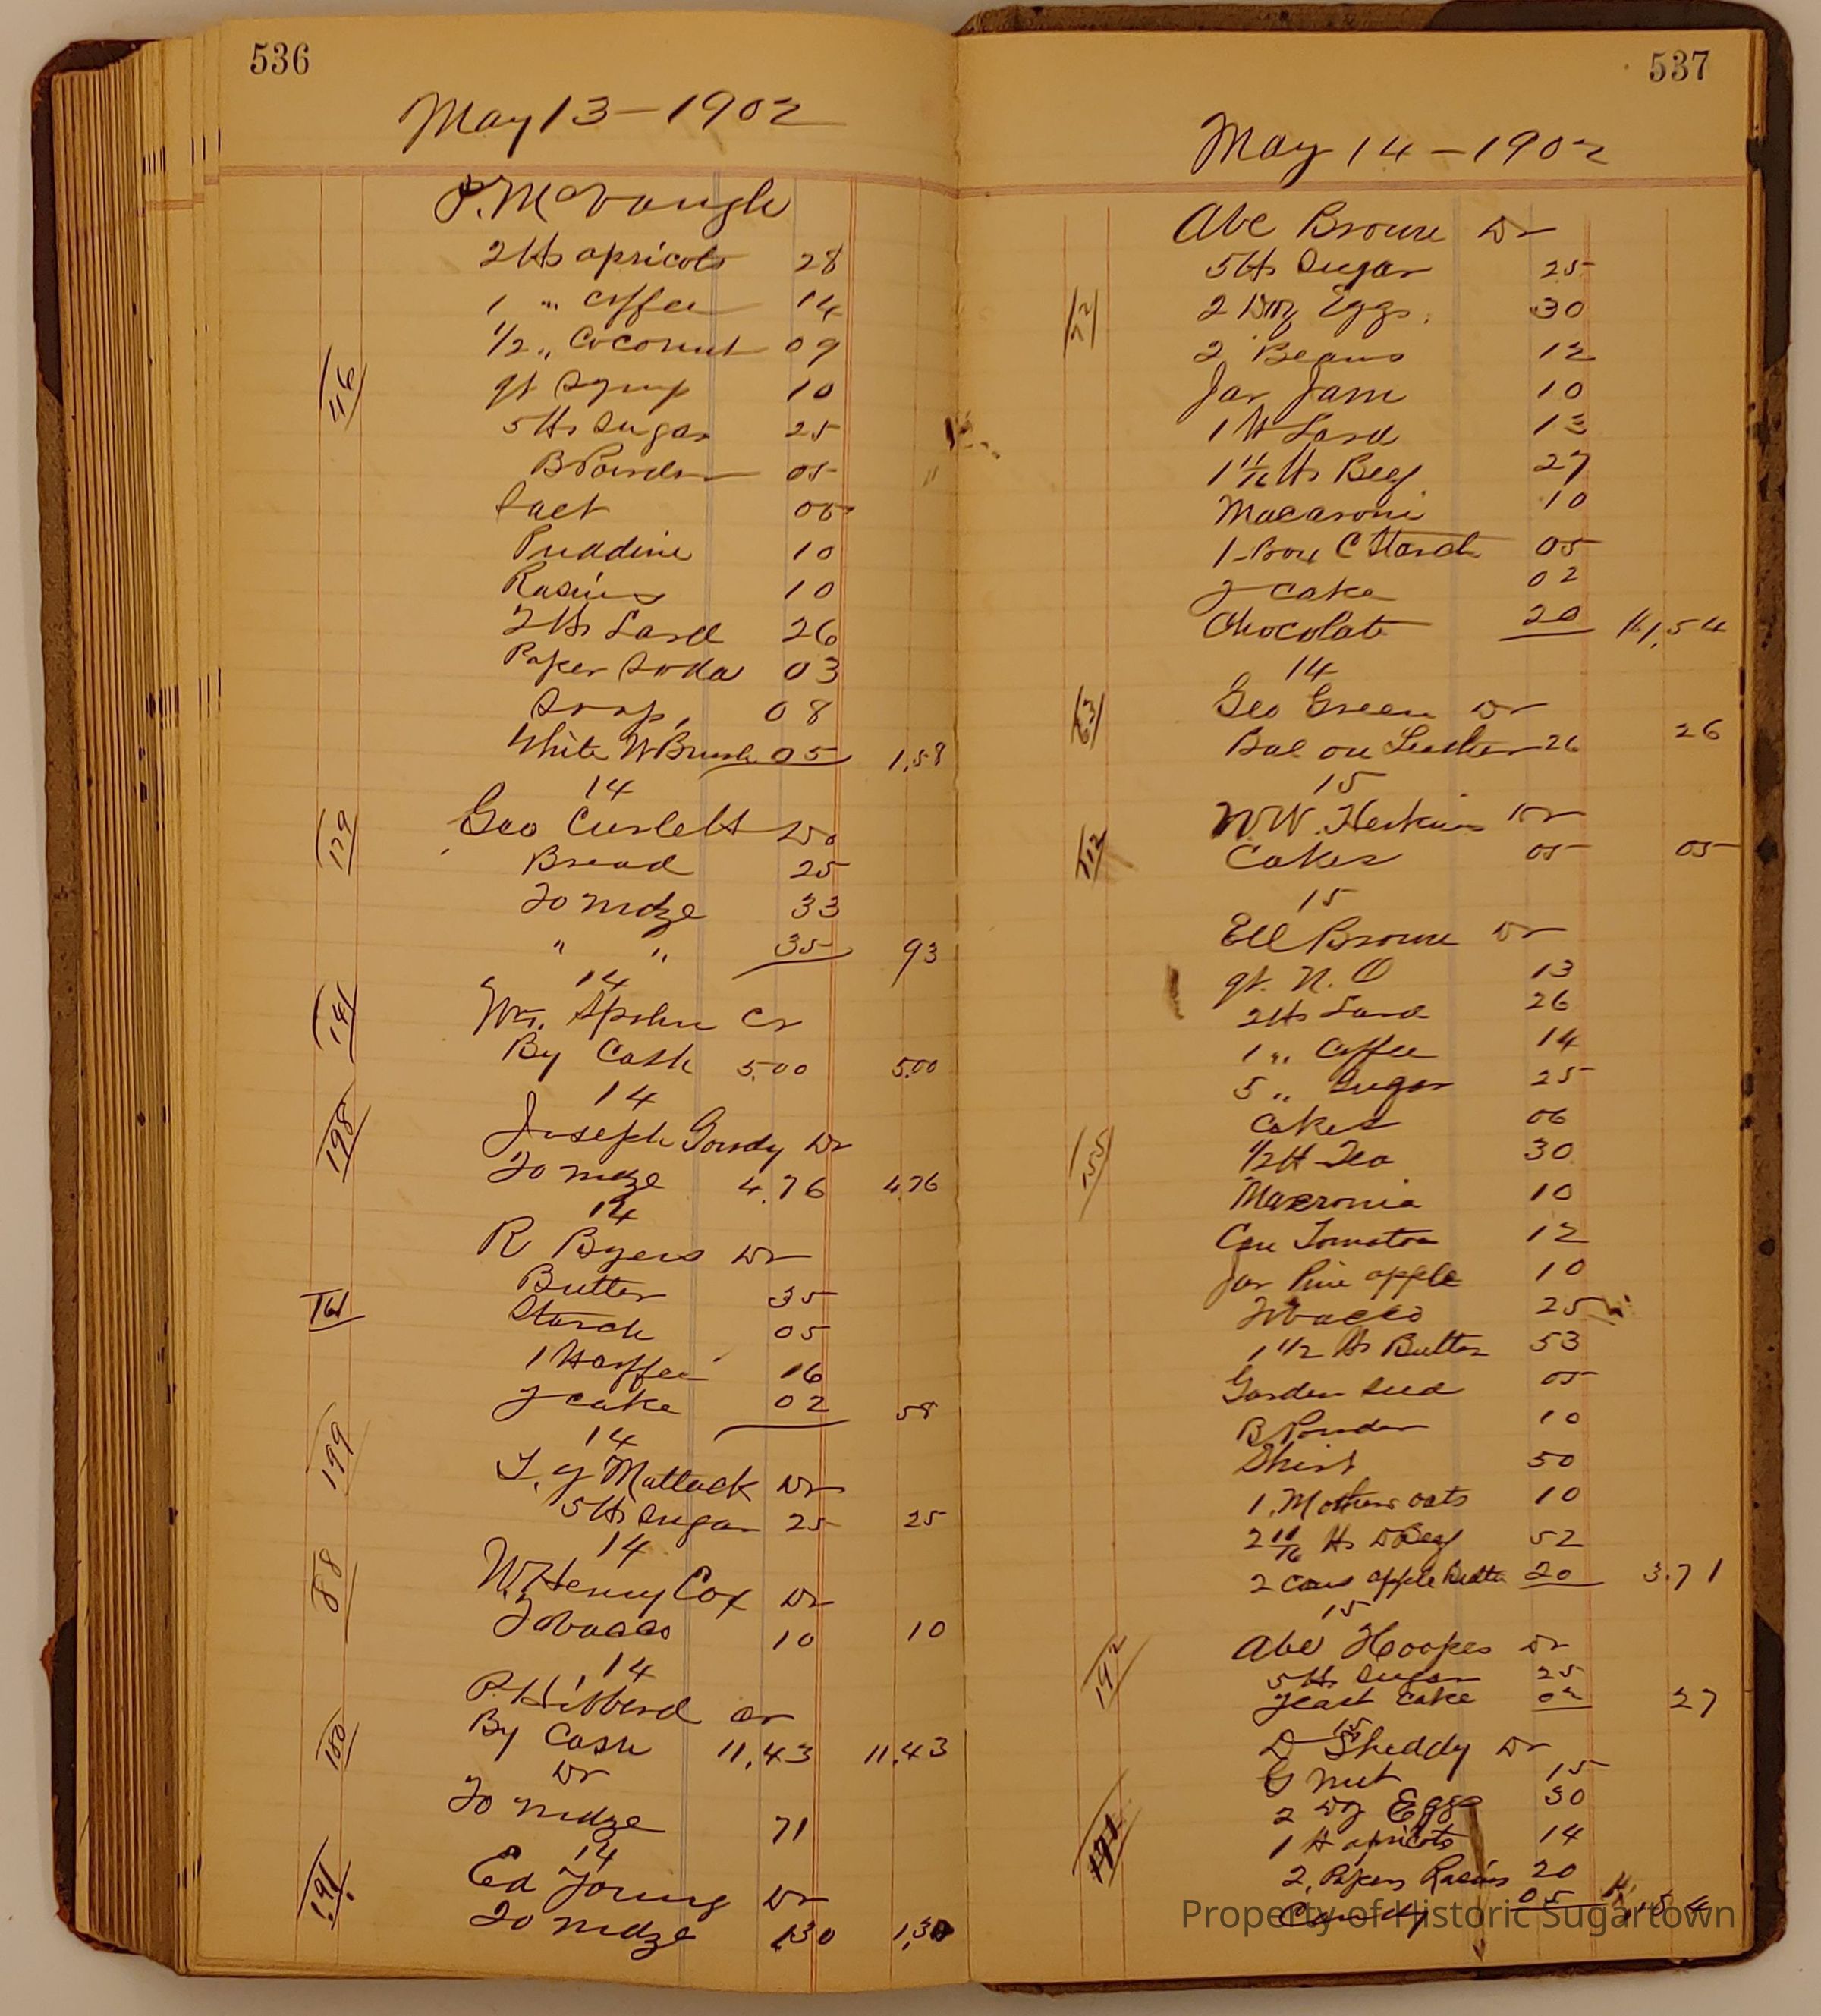 536
May 13 - 1902
46
P. McVaugh
2 lbs apricots 28
1 " coffee 14
1/2 " Coconut 09
qt Syrup 10
5 lbs Sugar 25
B Powder 05
Salt 05
Puddine 10
Rasins 10
2 lbs Lard 26
Paper Soda 03
Soap. 08
White W Brush 05 1.58
14
129
Geo Cuslett Dr
Bread 25
To mdze 33
" " 35 93
14
141
Wm. Spohn Cr
By Cash 5.00 5.00
14
198
Joseph Goudy Dr
To mdze 4.76 4.76
14
161
R Byers Dr
Butter 35
Starch 05
1 lb coffee 16
y cake 02 58
14
199
T. J Matlack Dr
5 lbs Sugar 25 25
14
88
W. Henry Cox Dr
Tobacco 10 10
14
180
P. Hibberd Cr
By Cash 11.43 11.43
Dr
To mdze 71
14
191
Ed Young Dr
To mdze 1.30 1.30
537
May 14 - 1902
22
Abe Brown Dr
5 lbs Sugar 25
2 Doz Eggs. 30
2 Beans 12
Jar Jam 10
1 lb Lard 13
1 11/16 lbs Beef 27
Macaroni 10
1 Box C Starch 05
y cake 02
Chocolate 20 1.54
14
63
Geo Green Dr
Bal on Leather 26 26
15
212
W.W. Haskins Dr
Cakes 05 05
15
155
Ell Brown Dr
qt. N. O 13
2 lbs Lard 26
1 " Coffee 14
5 " Sugar 25
Cakes 06
1/2 lb Tea 30
Maxronia 10
Can Tomatoa 12
Jar Pine apple 10
Tobacco 25
1 1/2 lbs Butter 53
Garden Seed 05
B Powder 10
Shirt 50
1 Mothers oats 10
2 11/16 lbs D Beef 52
2 Cans apple Butter 20 3.71
15
192
Abe Hoopes Dr
5 lbs Sugar 25
Yeast Cake 02 27
15
191
D Sheddy Dr
G Nut 15
2 Doz Eggs 30
1 lb apricots 14
2 Papers Rasins 20
Candy 05
Property of Historic Sugartown